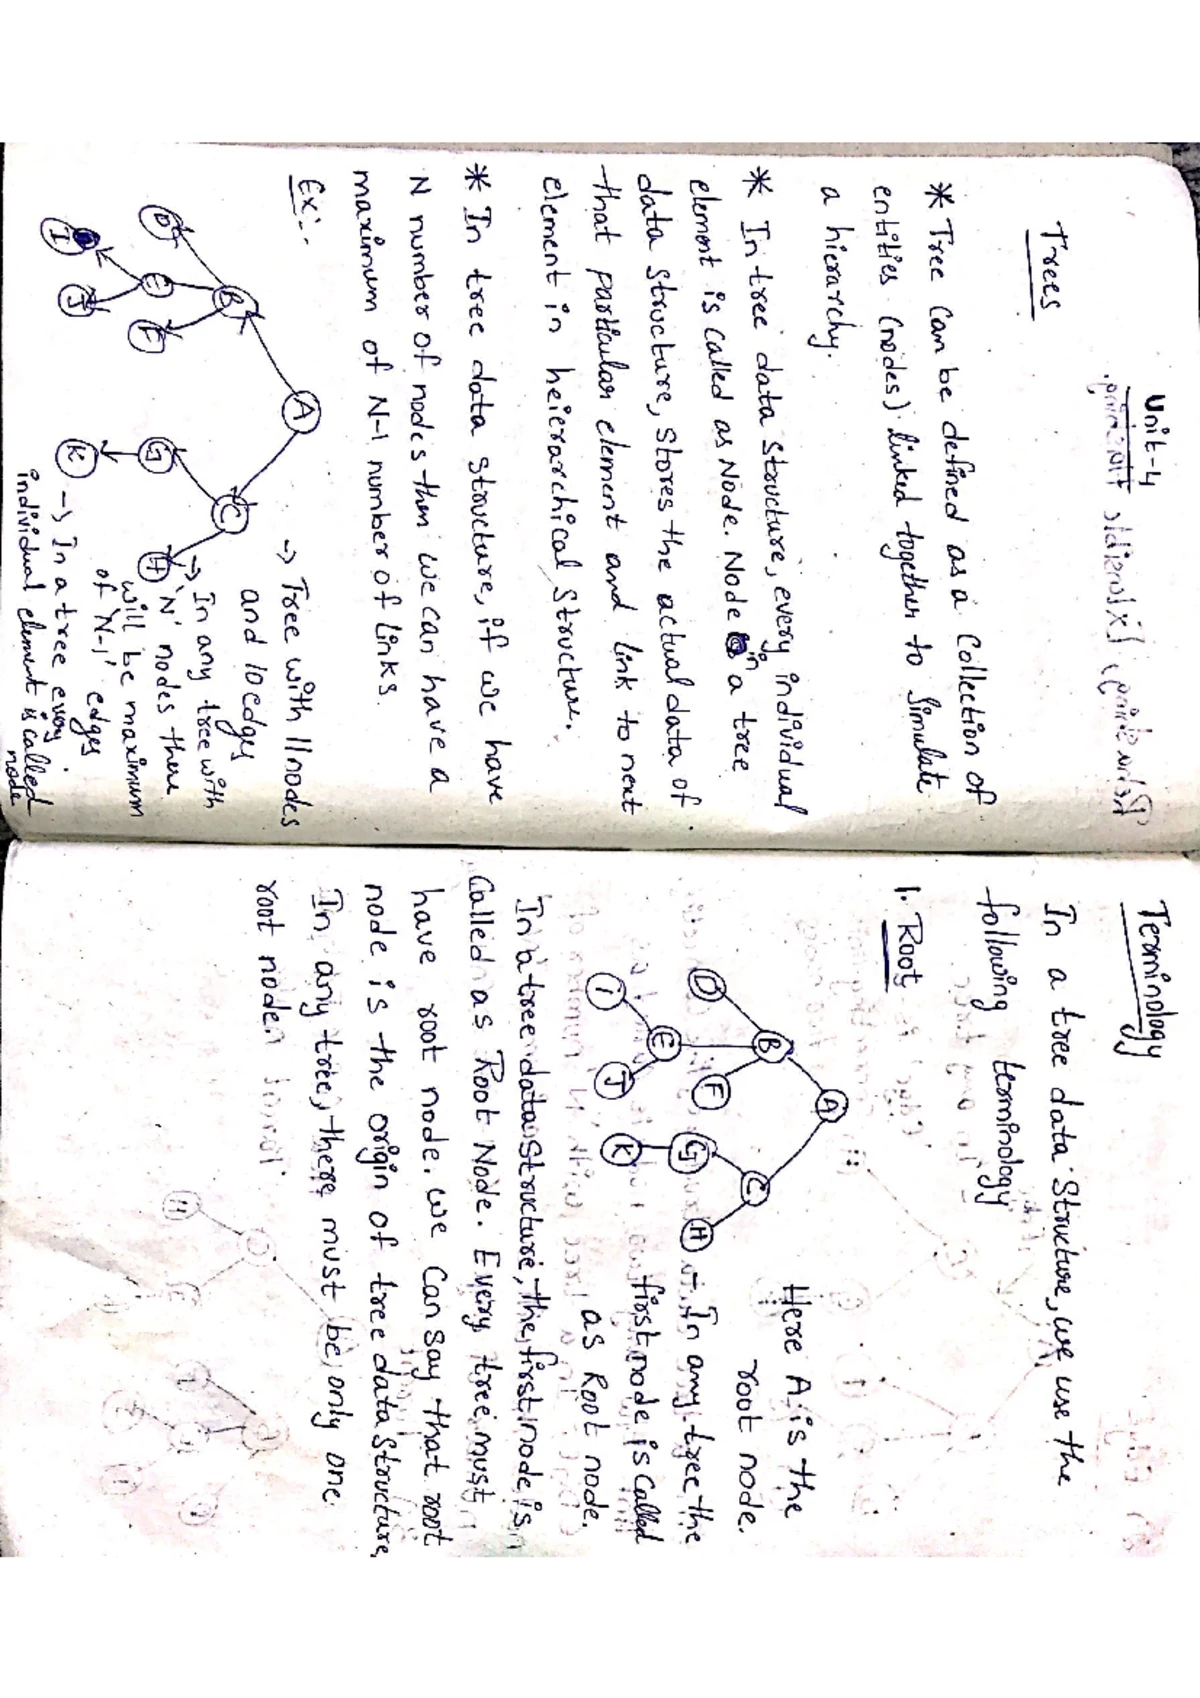 Unit-4
Trees
* Tree can be defined as a collection of
entities (nodes) linked together to simulate
a hierarchy.
* In tree data structure, every individual
element is called as Node. Node in a tree
data structure, stores the actual data of
that particular element and link to next
element in heierarchical structure.
* In tree data structure, if we have
N number of nodes then we can have a
maximum of N-1 number of links.
Ex:-
A
B
C
D
E
F
G
H
I
J
K
→ Tree with 11 nodes
and 10 edges
→ In any tree with
'N' nodes there
will be maximum
of 'N-1' edges
→ In a tree every
individual element is called
node
Terminology
In a tree data structure, we use the
following terminology
1. Root
A
B
C
D
E
F
G
H
I
J
K
Here A is the
root node.
- In any tree the
first node is called
as Root node.
In a tree data structure, the first node is
called as Root Node. Every tree must
have root node. we can say that root
node is the origin of tree data structure.
In any tree, there must be only one
root node.